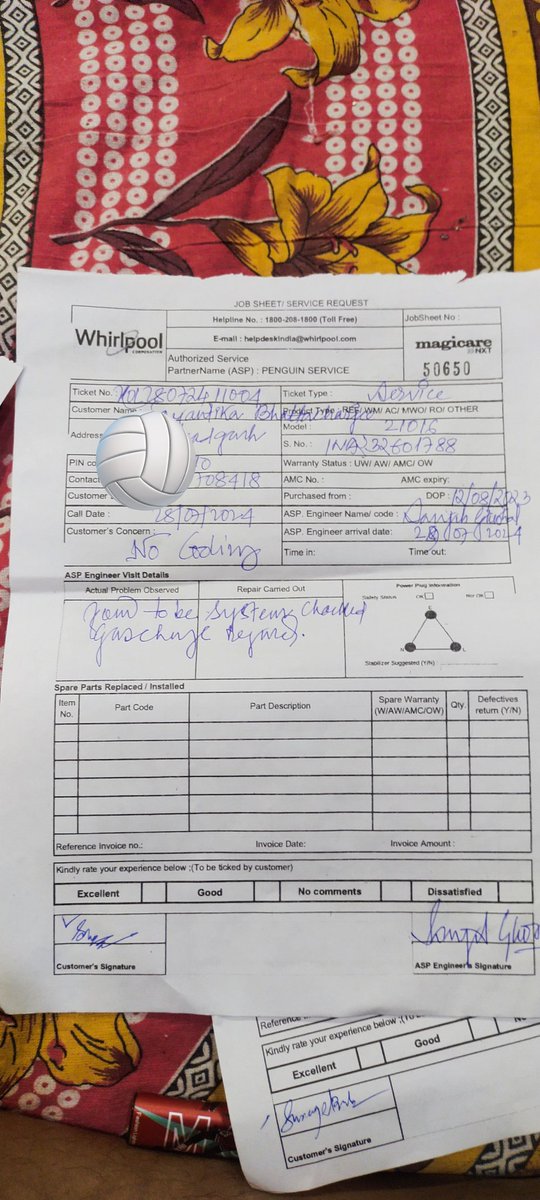 JOB SHEET/ SERVICE REQUEST
Whirlpool
CORPORATION
Helpline No. : 1800-208-1800 (Toll Free)
E-mail : helpdeskindia@whirlpool.com
Authorized Service
PartnerName (ASP) : PENGUIN SERVICE
JobSheet No :
magicare
NXT
50650
Ticket No.
Ticket Type : Service
Customer Name
Product Type : REF/WM/ AC/ MWO/ RO/ OTHER
Model : 21016
Address
S. No. : INA232601788
PIN co
Warranty Status : UW/ AW/ AMC/ OW
Contac 708418
AMC No. : AMC expiry:
Customer
Purchased from : DOP : 12/08/2023
Call Date : 28/07/2024
ASP. Engineer Name/ code :
Customer's Concern :
ASP. Engineer arrival date: 28/07/2024
No Cooling
Time in: Time out:
ASP Engineer Visit Details
Actual Problem Observed
Repair Carried Out
Power Plug Information
Safety Status OK Not OK
to be System
Gas charge
E
N L
Stabilizer Suggested (Y/N)
Spare Parts Replaced / Installed
Item No. Part Code Part Description Spare Warranty (W/AW/AMC/OW) Qty. Defectives return (Y/N)
Reference Invoice no.: Invoice Date: Invoice Amount :
Kindly rate your experience below ;(To be ticked by customer)
Excellent Good No comments Dissatisfied
Customer's Signature
ASP Engineer's Signature
Reference
Kindly rate your experience below ;(To
Excellent Good
Customer's Signature
M